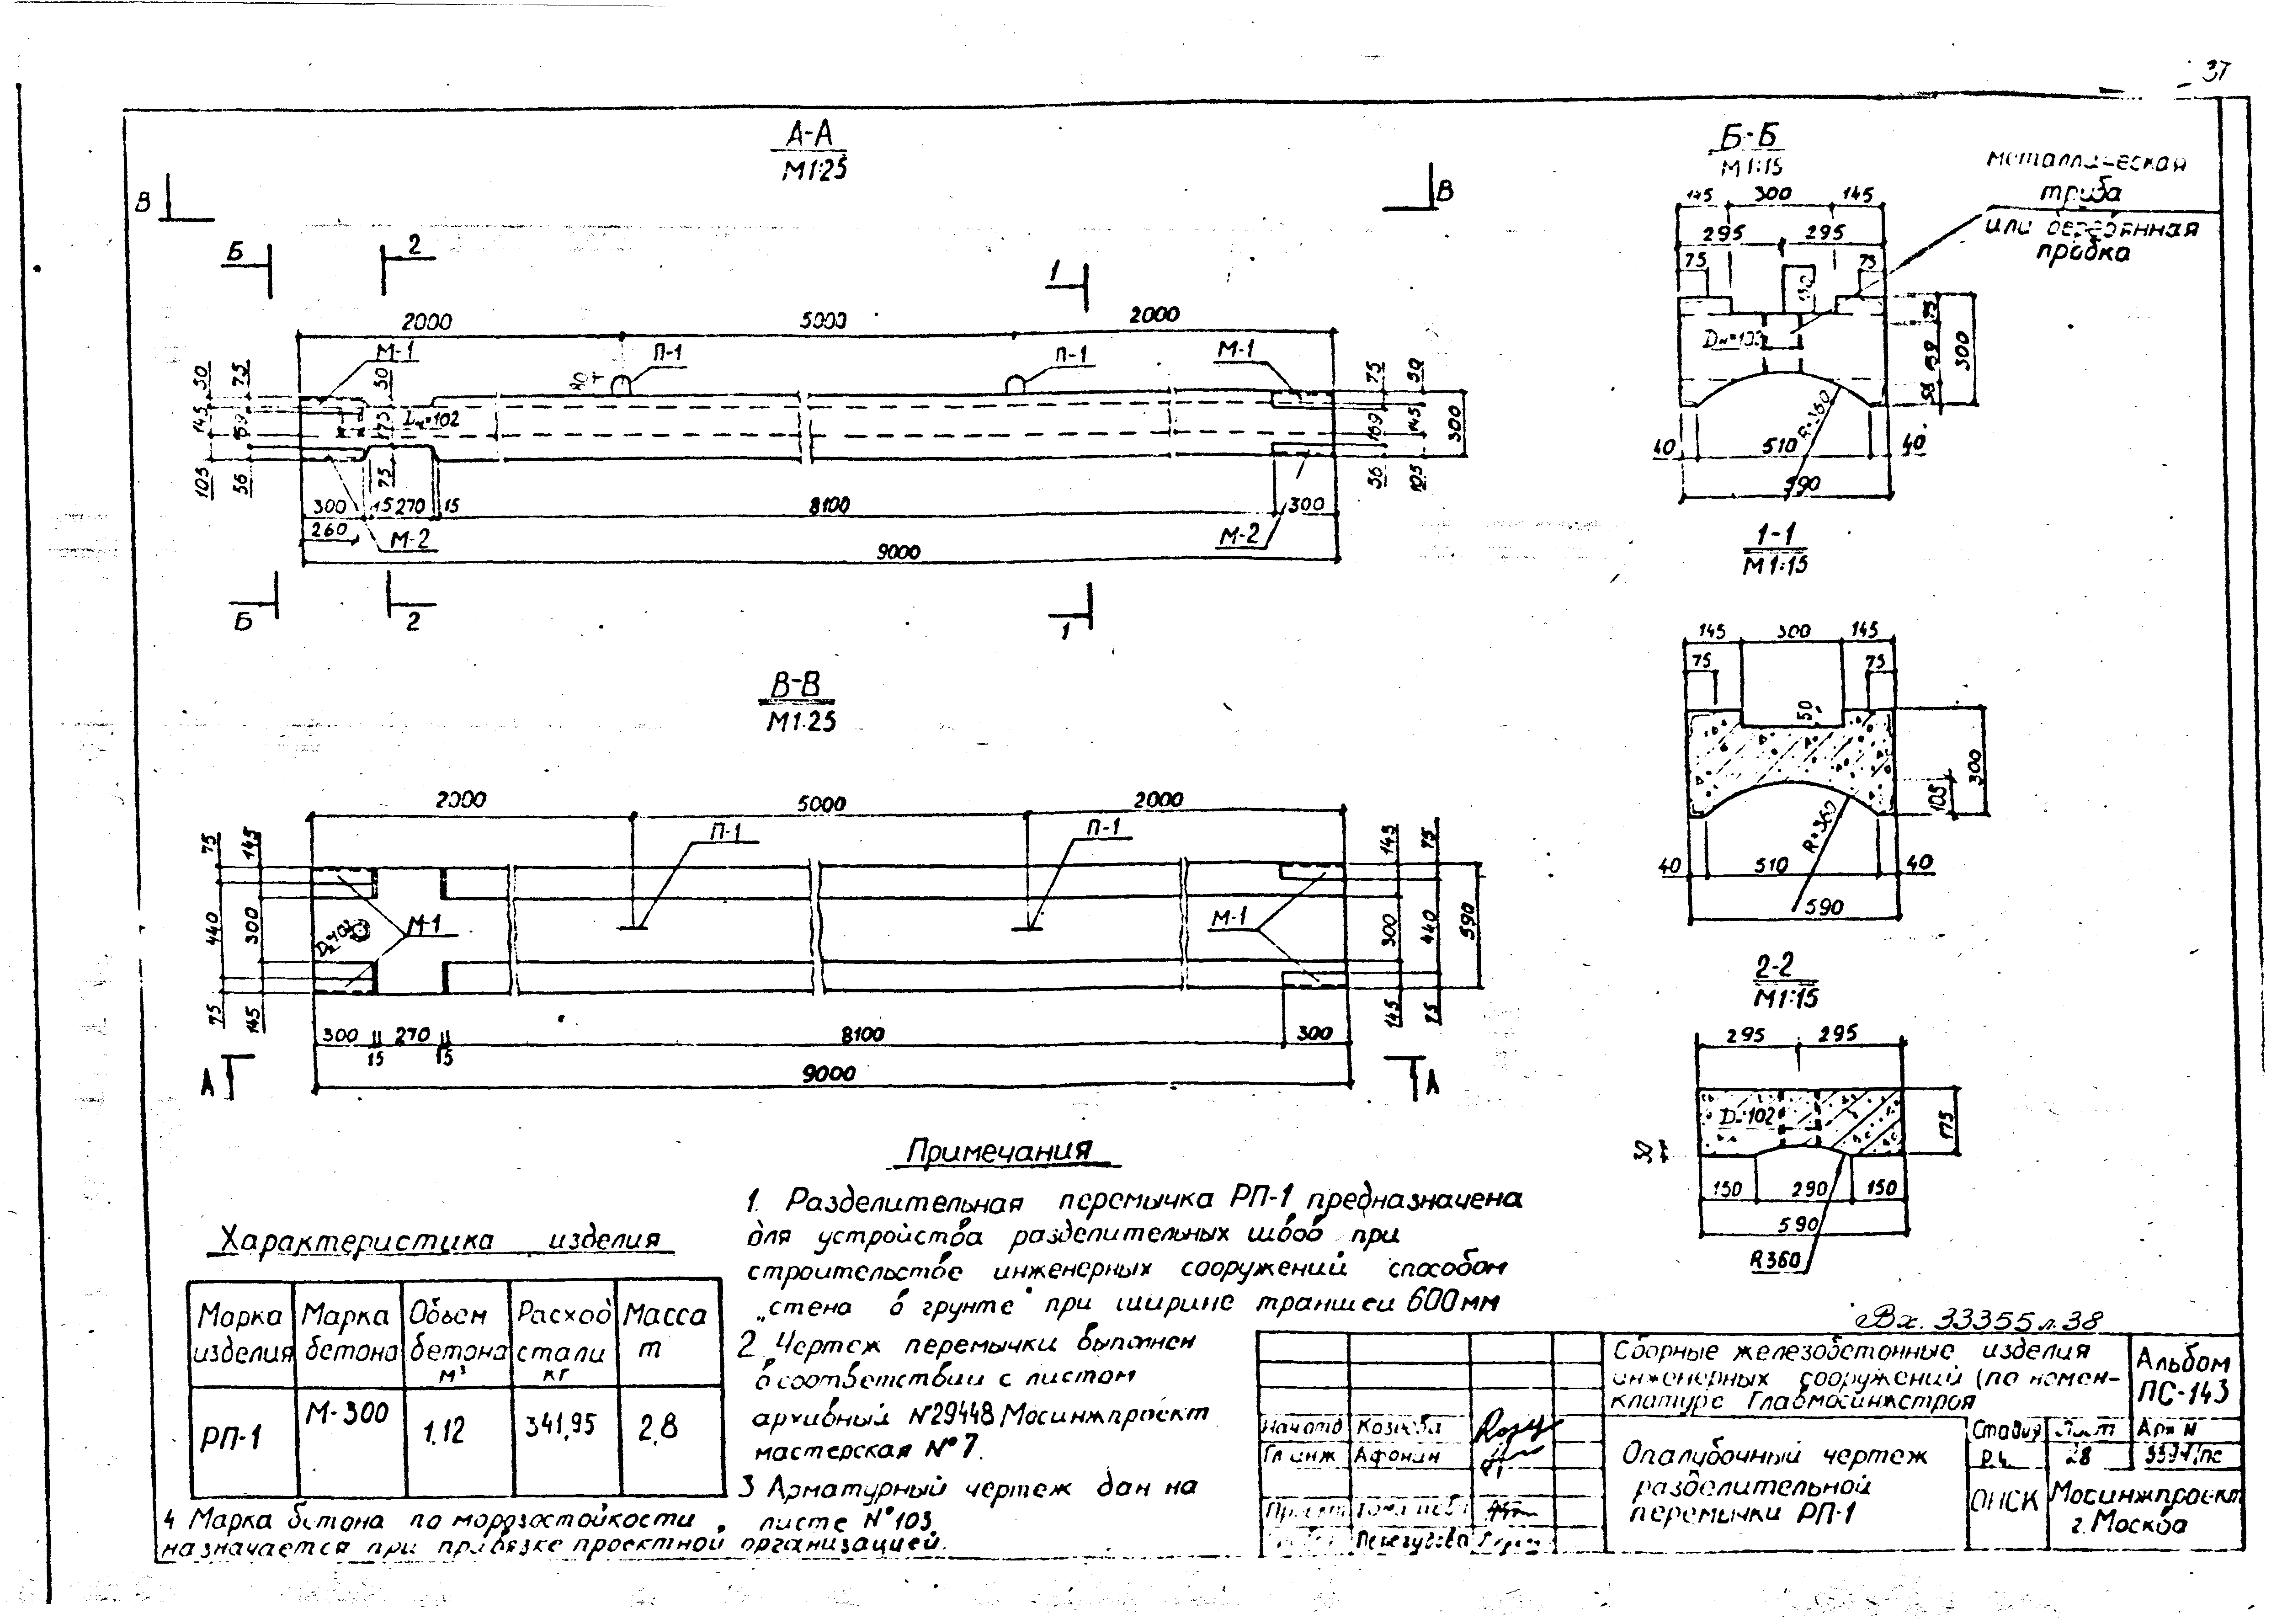 37
А-А
М1:25
В
В
Б
2
1
2000
5000
2000
М-1
П-1
П-1
М-1
50
75
50
80
75
50
145
169
175
Dн=102
169
145
300
105
56
75
56
105
300
15
270
15
8100
300
260
М-2
М-2
9000
Б
2
1
В-В
М1:25
2000
5000
2000
75
145
П-1
П-1
145
75
440
300
М-1
М-1
300
440
590
75
145
145
75
300
270
8100
300
15
15
9000
А
А
Б-Б
М1:15
металлическая
труба
или деревянная
пробка
145
300
145
295
295
75
75
75
169
300
56
R=360
40
510
40
590
1-1
М1:15
145
300
145
75
75
50
300
105
R=360
40
510
40
590
2-2
М1:15
295
295
D=102
175
50
150
290
150
590
R360
Примечания
1. Разделительная перемычка РП-1 предназначена
для устройства разделительных швов при
строительстве инженерных сооружений способом
„стена в грунте" при ширине траншеи 600мм
2 Чертеж перемычки выполнен
в соответствии с листом
архивный №29448 Мосинжпроект
мастерская №7.
3 Арматурный чертеж дан на
листе №103.
4 Марка бетона по морозостойкости
назначается при привязке проектной организацией.
Характеристика изделия
Марка изделия
Марка бетона
Объем бетона м³
Расход стали кг
Масса т
РП-1
М-300
1,12
341,95
2,8
Вх. 33355 л.38
Сборные железобетонные изделия
инженерных сооружений (по номен-
клатуре Главмосинжстроя
Альбом
ПС-143
Нач отд
Гл инж Афонин
Стадия
Лист
Арх №
Р.ч.
28
Опалубочный чертеж
разделительной
перемычки РП-1
ОНСК
Мосинжпроект
г.Москва